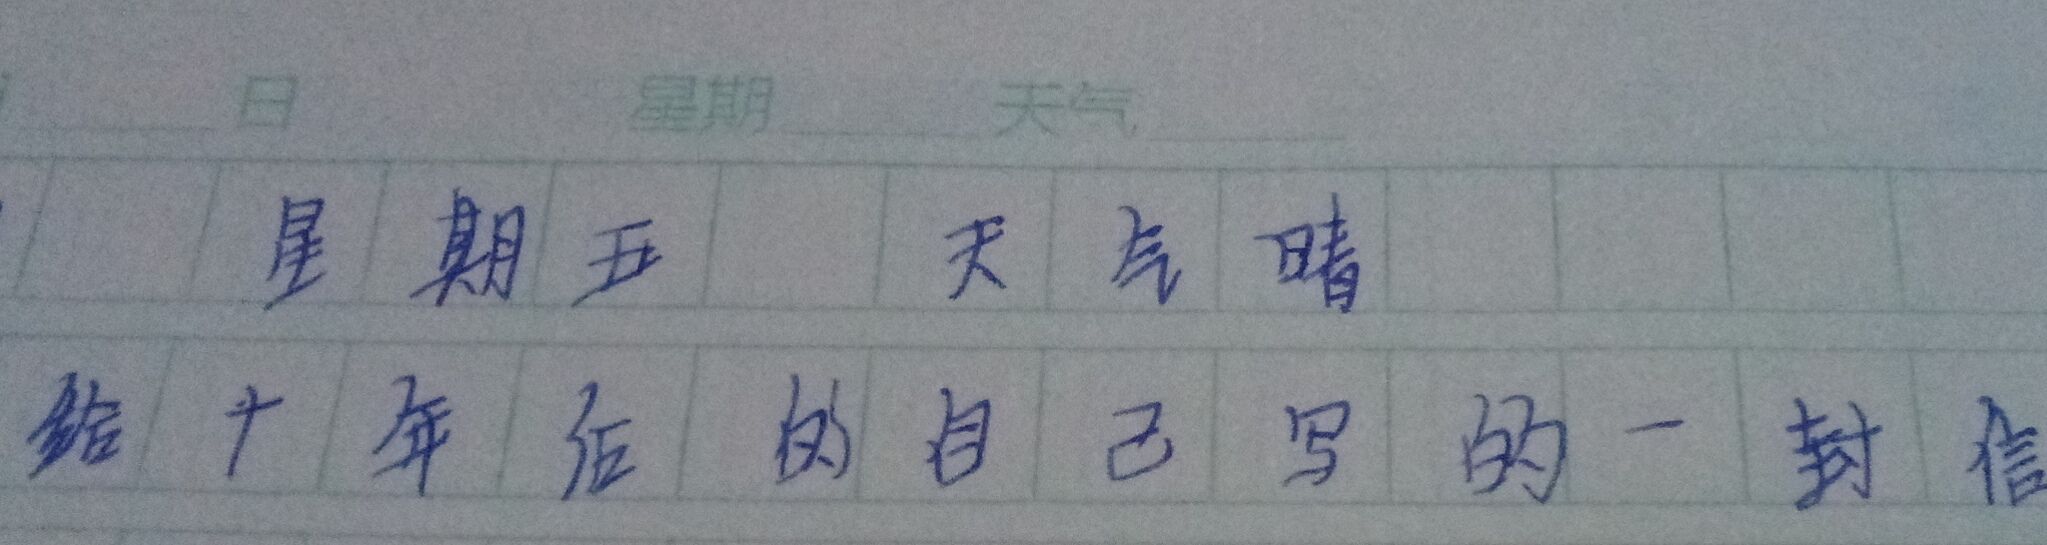 日 星期 天气
星期五 天气晴
给十年后的自己写的一封信